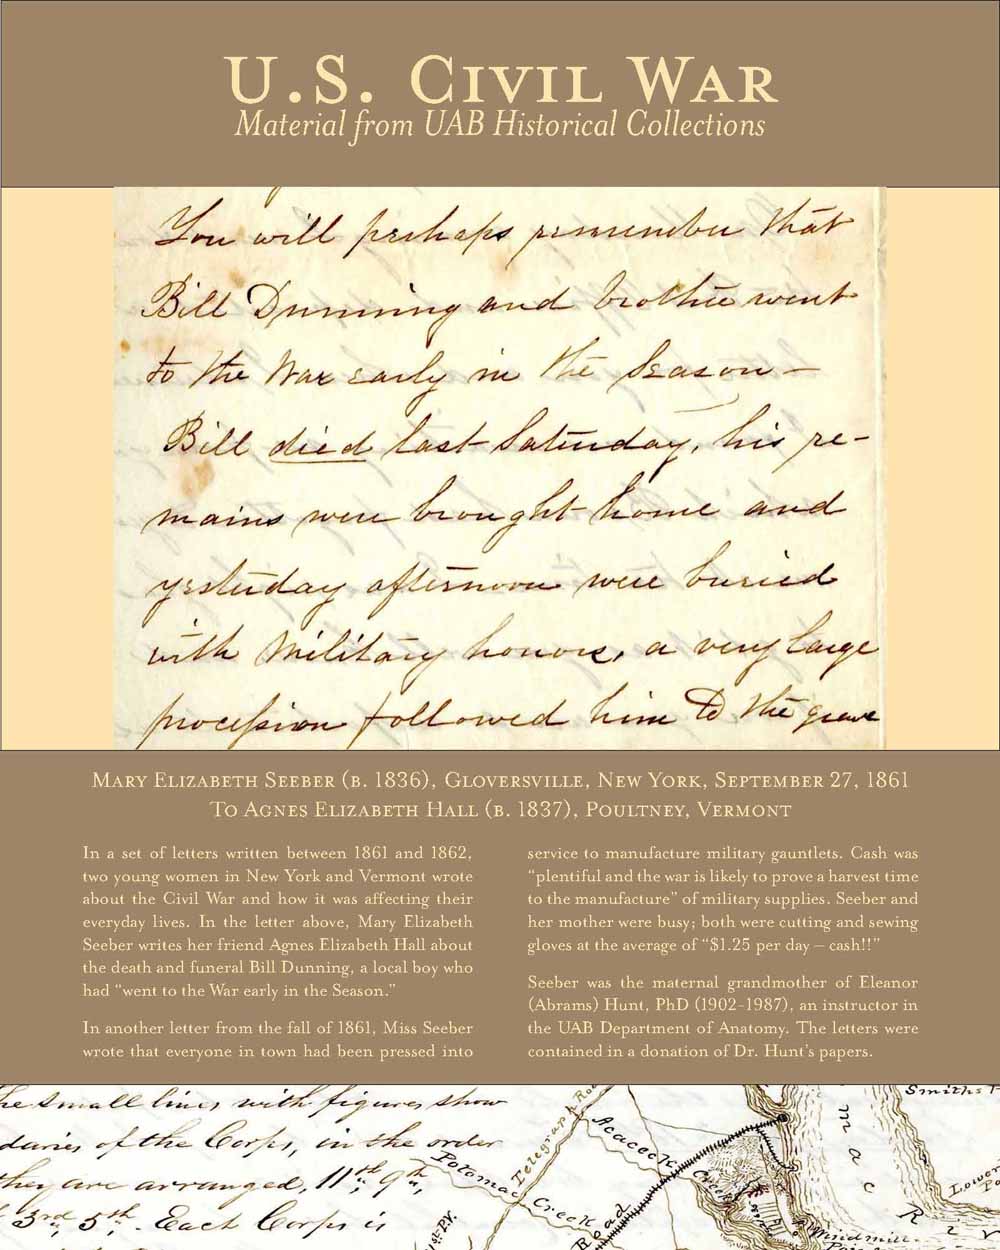 U.S. Civil War
Material from UAB Historical Collections
You will perhaps remember that
Bill Dunning and brother went
to the War early in the Season –
Bill died last Saturday, his re-
mains were brought home and
yesterday afternoon were buried
with Military honors, a very large
procession followed him to the grave
Mary Elizabeth Seeber (b. 1836), Gloversville, New York, September 27, 1861
To Agnes Elizabeth Hall (b. 1837), Poultney, Vermont
In a set of letters written between 1861 and 1862,
two young women in New York and Vermont wrote
about the Civil War and how it was affecting their
everyday lives. In the letter above, Mary Elizabeth
Seeber writes her friend Agnes Elizabeth Hall about
the death and funeral Bill Dunning, a local boy who
had “went to the War early in the Season.”
In another letter from the fall of 1861, Miss Seeber
wrote that everyone in town had been pressed into
service to manufacture military gauntlets. Cash was
“plentiful and the war is likely to prove a harvest time
to the manufacture” of military supplies. Seeber and
her mother were busy; both were cutting and sewing
gloves at the average of “$1.25 per day – cash!!”
Seeber was the maternal grandmother of Eleanor
(Abrams) Hunt, PhD (1902-1987), an instructor in
the UAB Department of Anatomy. The letters were
contained in a donation of Dr. Hunt’s papers.
he small lines with figures show
daries of the Corps, in the order
they are arranged, 11th, 9th,
3rd, 5th. Each Corps is
Potomac Creek
Telegraph Road
Accaceek
Creek
Road
Smiths P
m a c
R i v
Lower
Windmill